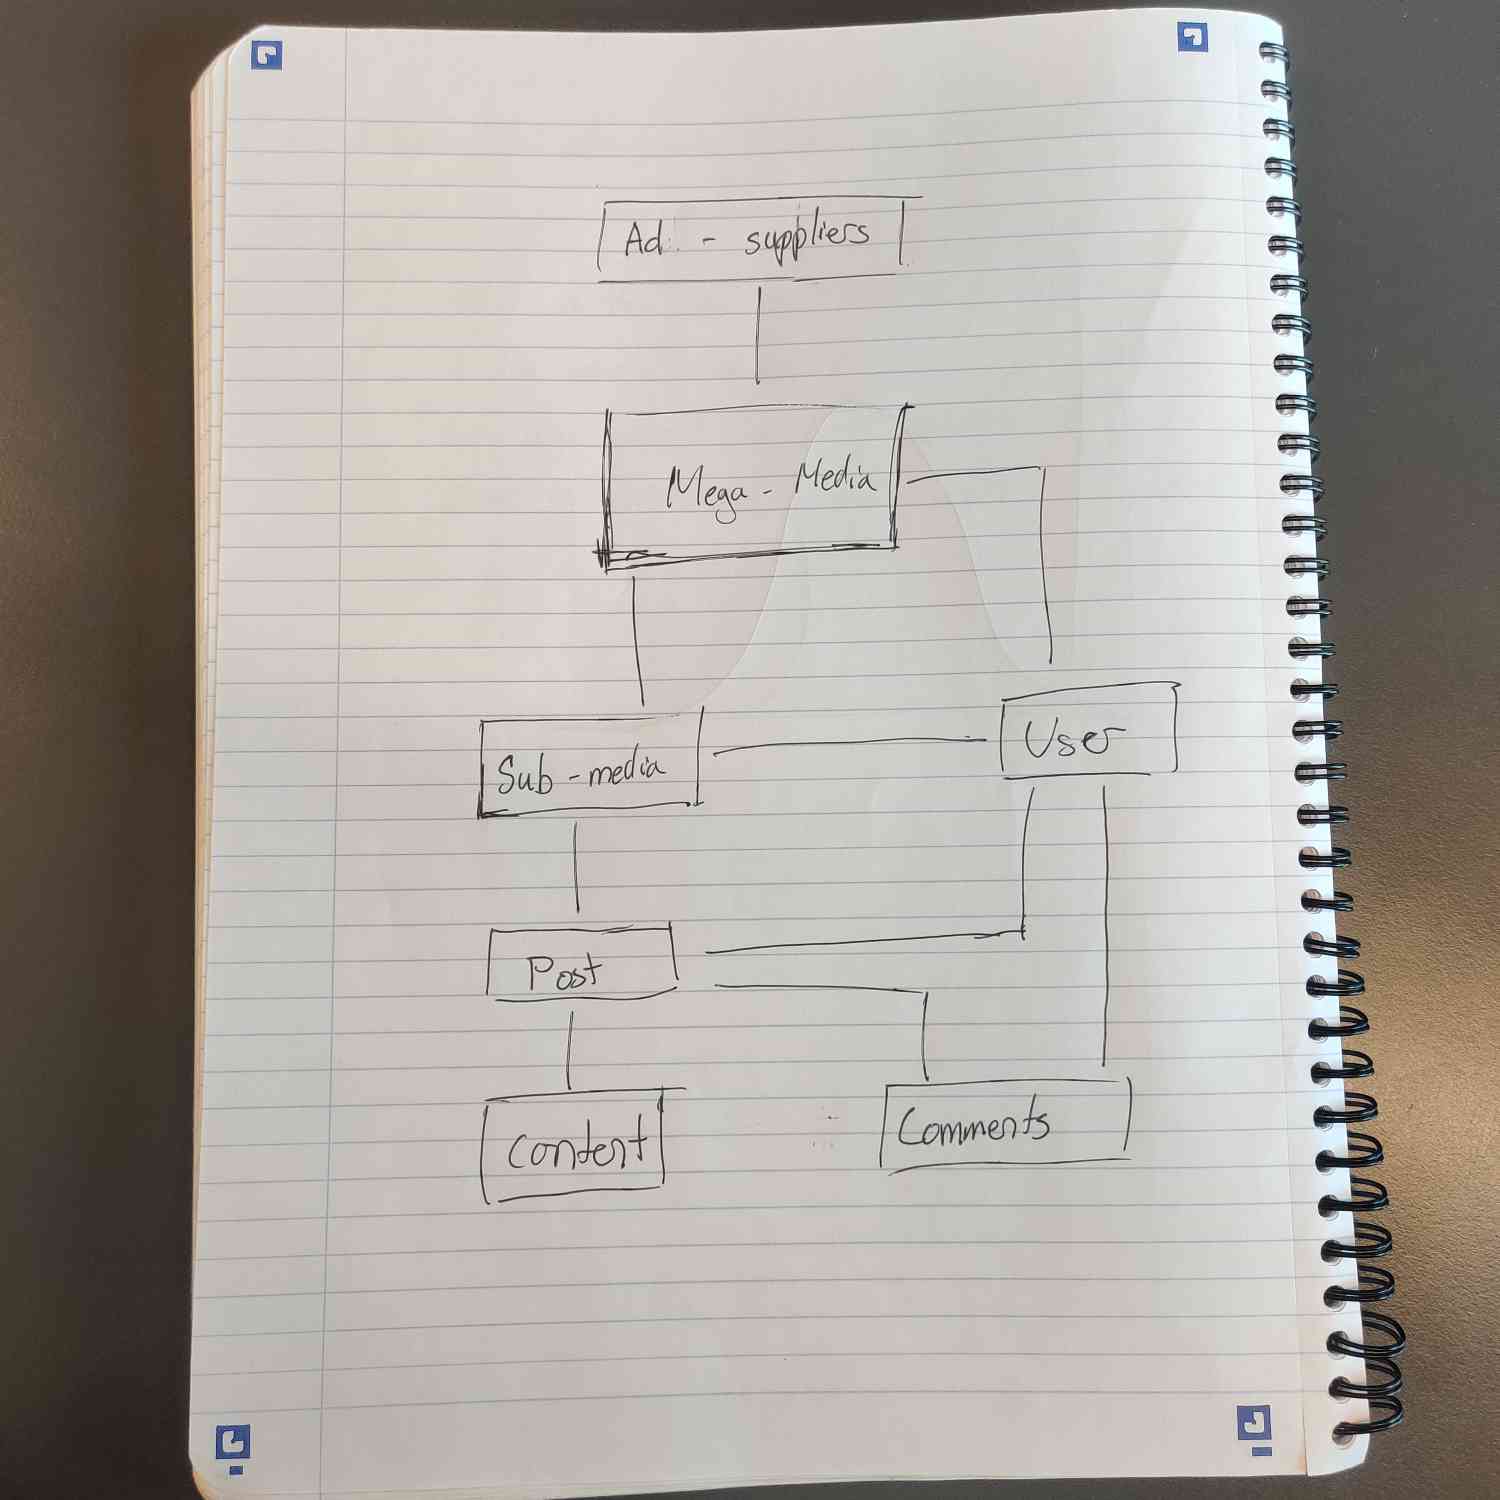 Ad - suppliers
Mega - Media
Sub - media
User
Post
Content
Comments